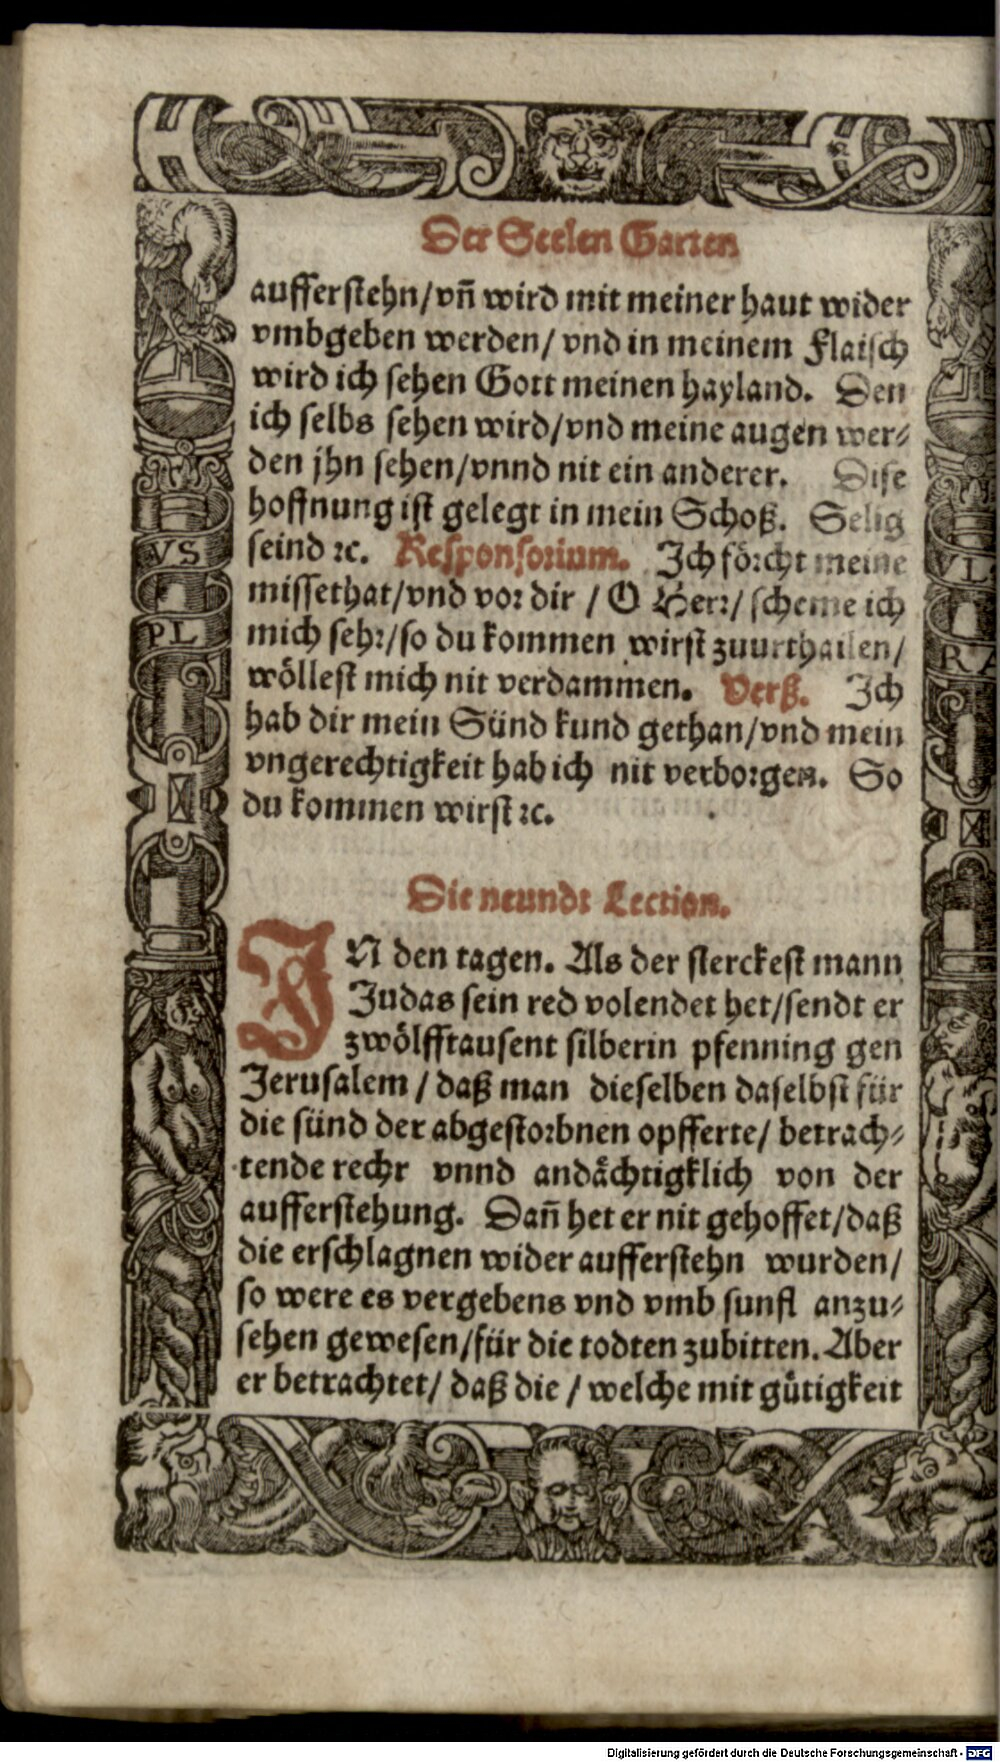 Der Seelen Garten
aufferstehn/vñ wird mit meiner haut wider
vmbgeben werden/ vnd in meinem Flaisch
wird ich sehen Gott meinen hayland. Den
ich selbs sehen wird/vnd meine augen wer⸗
den jhn sehen/vnnd nit ein anderer. Dise
hoffnung ist gelegt in mein Schoß. Selig
seind ꝛc. Responsorium. Ich förcht meine
missethat/vnd vor dir / O Herr/ scheme ich
mich sehr/so du kommen wirst zuurthailen/
wöllest mich nit verdammen. Verß. Ich
hab dir mein Sünd kund gethan/vnd mein
vngerechtigkeit hab ich nit verborgen. So
du kommen wirst ꝛc.
Die neundt Lection.
IN den tagen. Als der sterckest mann
Judas sein red volendet het/sendt er
zwölfftausent silberin pfenning gen
Jerusalem / daß man dieselben daselbst für
die sünd der abgestorbnen opfferte/ betrach⸗
tende recht vnnd andächtigklich von der
aufferstehung. Dañ het er nit gehoffet/daß
die erschlagnen wider aufferstehn wurden/
so were es vergebens vnd vmb sunst anzu⸗
sehen gewesen/für die todten zubitten. Aber
er betrachtet/ daß die / welche mit gütigkeit
VS
PL
VL
RA
Digitalisierung gefördert durch die Deutsche Forschungsgemeinschaft - DFG